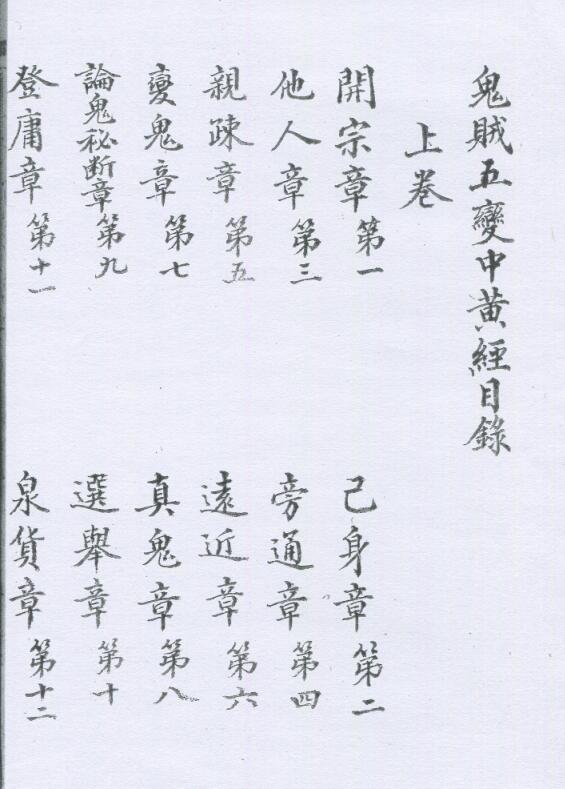 鬼賊五變中黃經目錄
上卷
開宗章第一
己身章第二
他人章第三
旁通章第四
親踈章第五
遠近章第六
變鬼章第七
真鬼章第八
論鬼秘断章第九
選舉章第十
登庸章第十一
泉貨章第十二